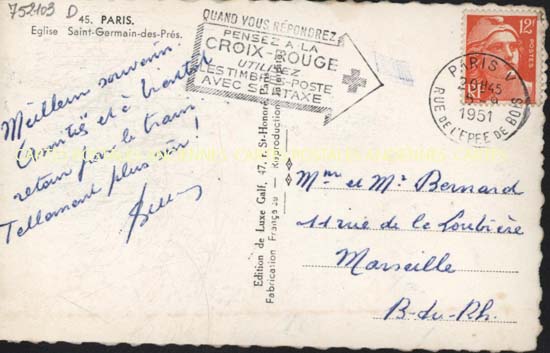 752103 D
45. PARIS.
Eglise Saint-Germain-des-Prés.
QUAND VOUS RÉPONDREZ
PENSEZ A LA
CROIX-ROUGE
UTILISEZ
LES TIMBRES-POSTE
AVEC SURTAXE
12F
POSTES
RF
PARIS V
45
1951
RUE DE L'EPEE DE BOIS
Meilleur souvenir.
et à
retour par le train
Tellement plus sûr!
Edition de Luxe Galf, 47, r. St-Honoré, Paris
Fabrication Française — Reproduction
Mme et Mr Bernard
11 rue de la Loubière
Marseille
B-du-Rh.